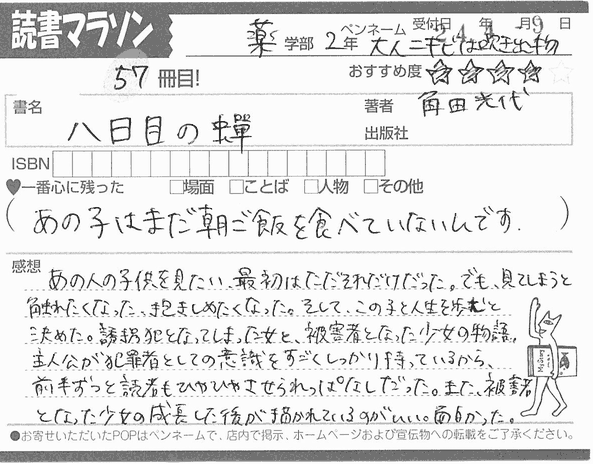 読書マラソン
薬 学部 2年 ペンネーム 大人ニキビは吹き出物 受付日 年 月9日
57冊目!
おすすめ度 ☆☆☆☆☆
書名 八日目の蝉
著者 角田光代
出版社
ISBN
♥一番心に残った □場面 □ことば □人物 □その他
(あの子はまだ朝ご飯を食べていないんです.)
感想
あの人の子供を見たい、最初はただそれだけだった。でも、見てしまうと
触れたくなった、抱きしめたくなった。そして、この子と人生を歩むと
決めた。誘拐犯となってしまった女と、被害者となった少女の物語。
主人公が犯罪者としての意識をすごくしっかり持っているから、
前半ずっと読者もひやひやさせられっぱなしだった。また、被害者
となった少女の成長した後が描かれているのがいい。面白かった。
●お寄せいただいたPOPはペンネームで、店内で掲示、ホームページおよび宣伝物への転載をご了承ください。